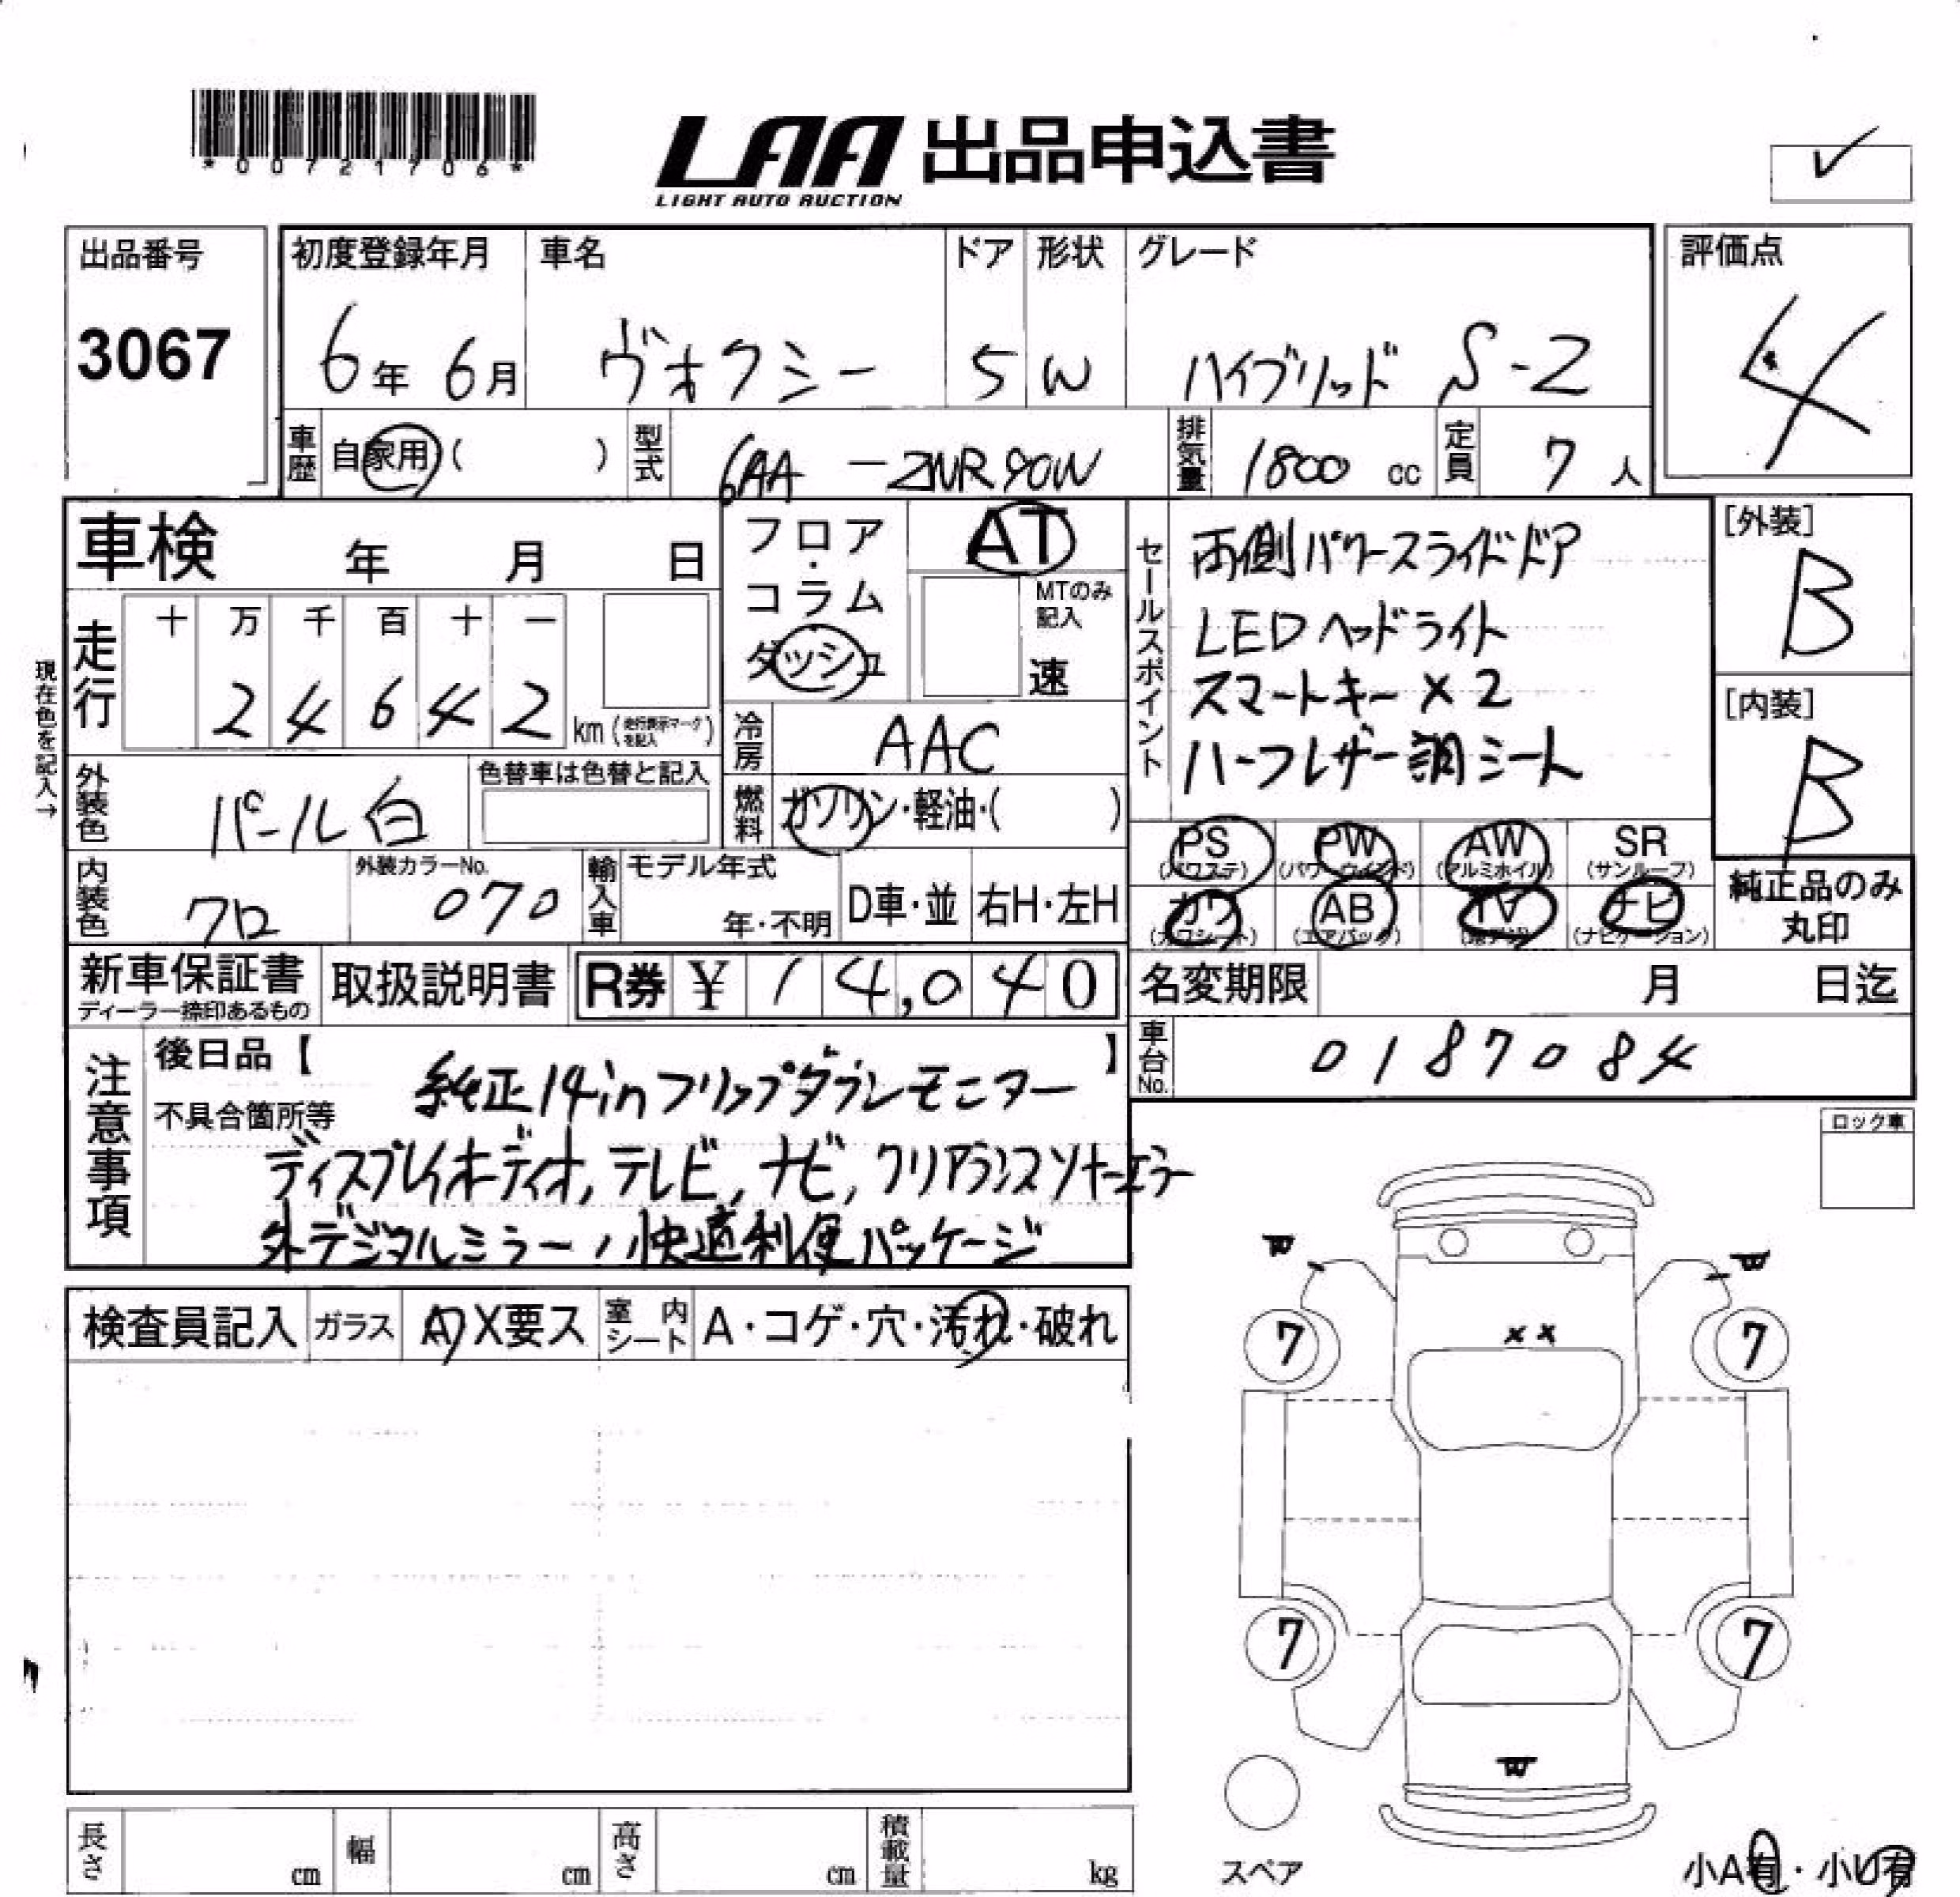 *00721706*
LAA 出品申込書
LIGHT AUTO AUCTION
✓
出品番号
3067
初度登録年月
6年 6月
車名
ヴォクシー
ドア
5
形状
W
グレード
ハイブリッド S-Z
評価点
4
車歴 自家用 ( )
型式 6AA-ZWR90W
排気量 1800 cc
定員 7 人
車検 年 月 日
フロア・コラム
ダッシュ
AT
MTのみ記入
速
セールスポイント
両側パワースライドドア
LEDヘッドライト
スマートキー×2
ハーフレザー調シート
[外装]
B
[内装]
B
現在色を記入→
走行
十 万 千 百 十 一
2 4 6 4 2 km (走行表示マークを記入)
冷房 AAC
燃料 ガソリン・軽油・( )
外装色 パール白
色替車は色替と記入
内装色 クロ
外装カラーNo.
070
輸入車
モデル年式
年・不明
D車・並
右H・左H
PS (パワステ)
PW (パワーウインド)
AW (アルミホイル)
SR (サンルーフ)
カワ (カワシート)
AB (エアバック)
TV
ナビ (ナビゲーション)
純正品のみ
丸印
新車保証書
ディーラー捺印あるもの
取扱説明書
R券 ¥ 14,040
名変期限 月 日迄
車台No. 0187084
注意事項
後日品【 】
不具合箇所等
純正14inフリップダウンモニター
ディスプレイオーディオ,テレビ,ナビ,クリアランスソナーエラー
外デジタルミラー,快適利便パッケージ
ロック車
検査員記入
ガラス A X要ス
室内シート A・コゲ・穴・汚れ・破れ
W
W
7
××
7
7
7
W
長さ cm
幅 cm
高さ cm
積載量 kg
スペア
小A有・小U有